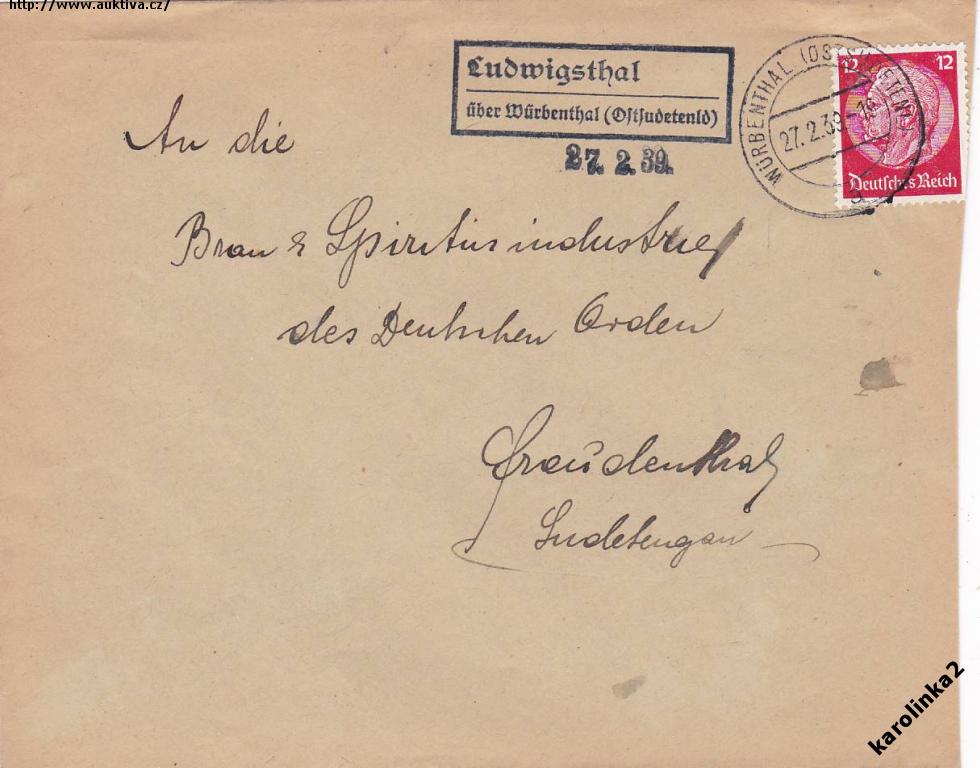 http://www.auktiva.cz/
Ludwigsthal
über Würbenthal (Ostsudetenld)
27. 2. 39.
WÜRBENTHAL (OSTSUDETENL)
27.2.39-16
12 12
Deutsches Reich
An die
Brau & Spiritusindustrie
des Deutschen Orden
Freudenthal
Sudetengau
karolinka2